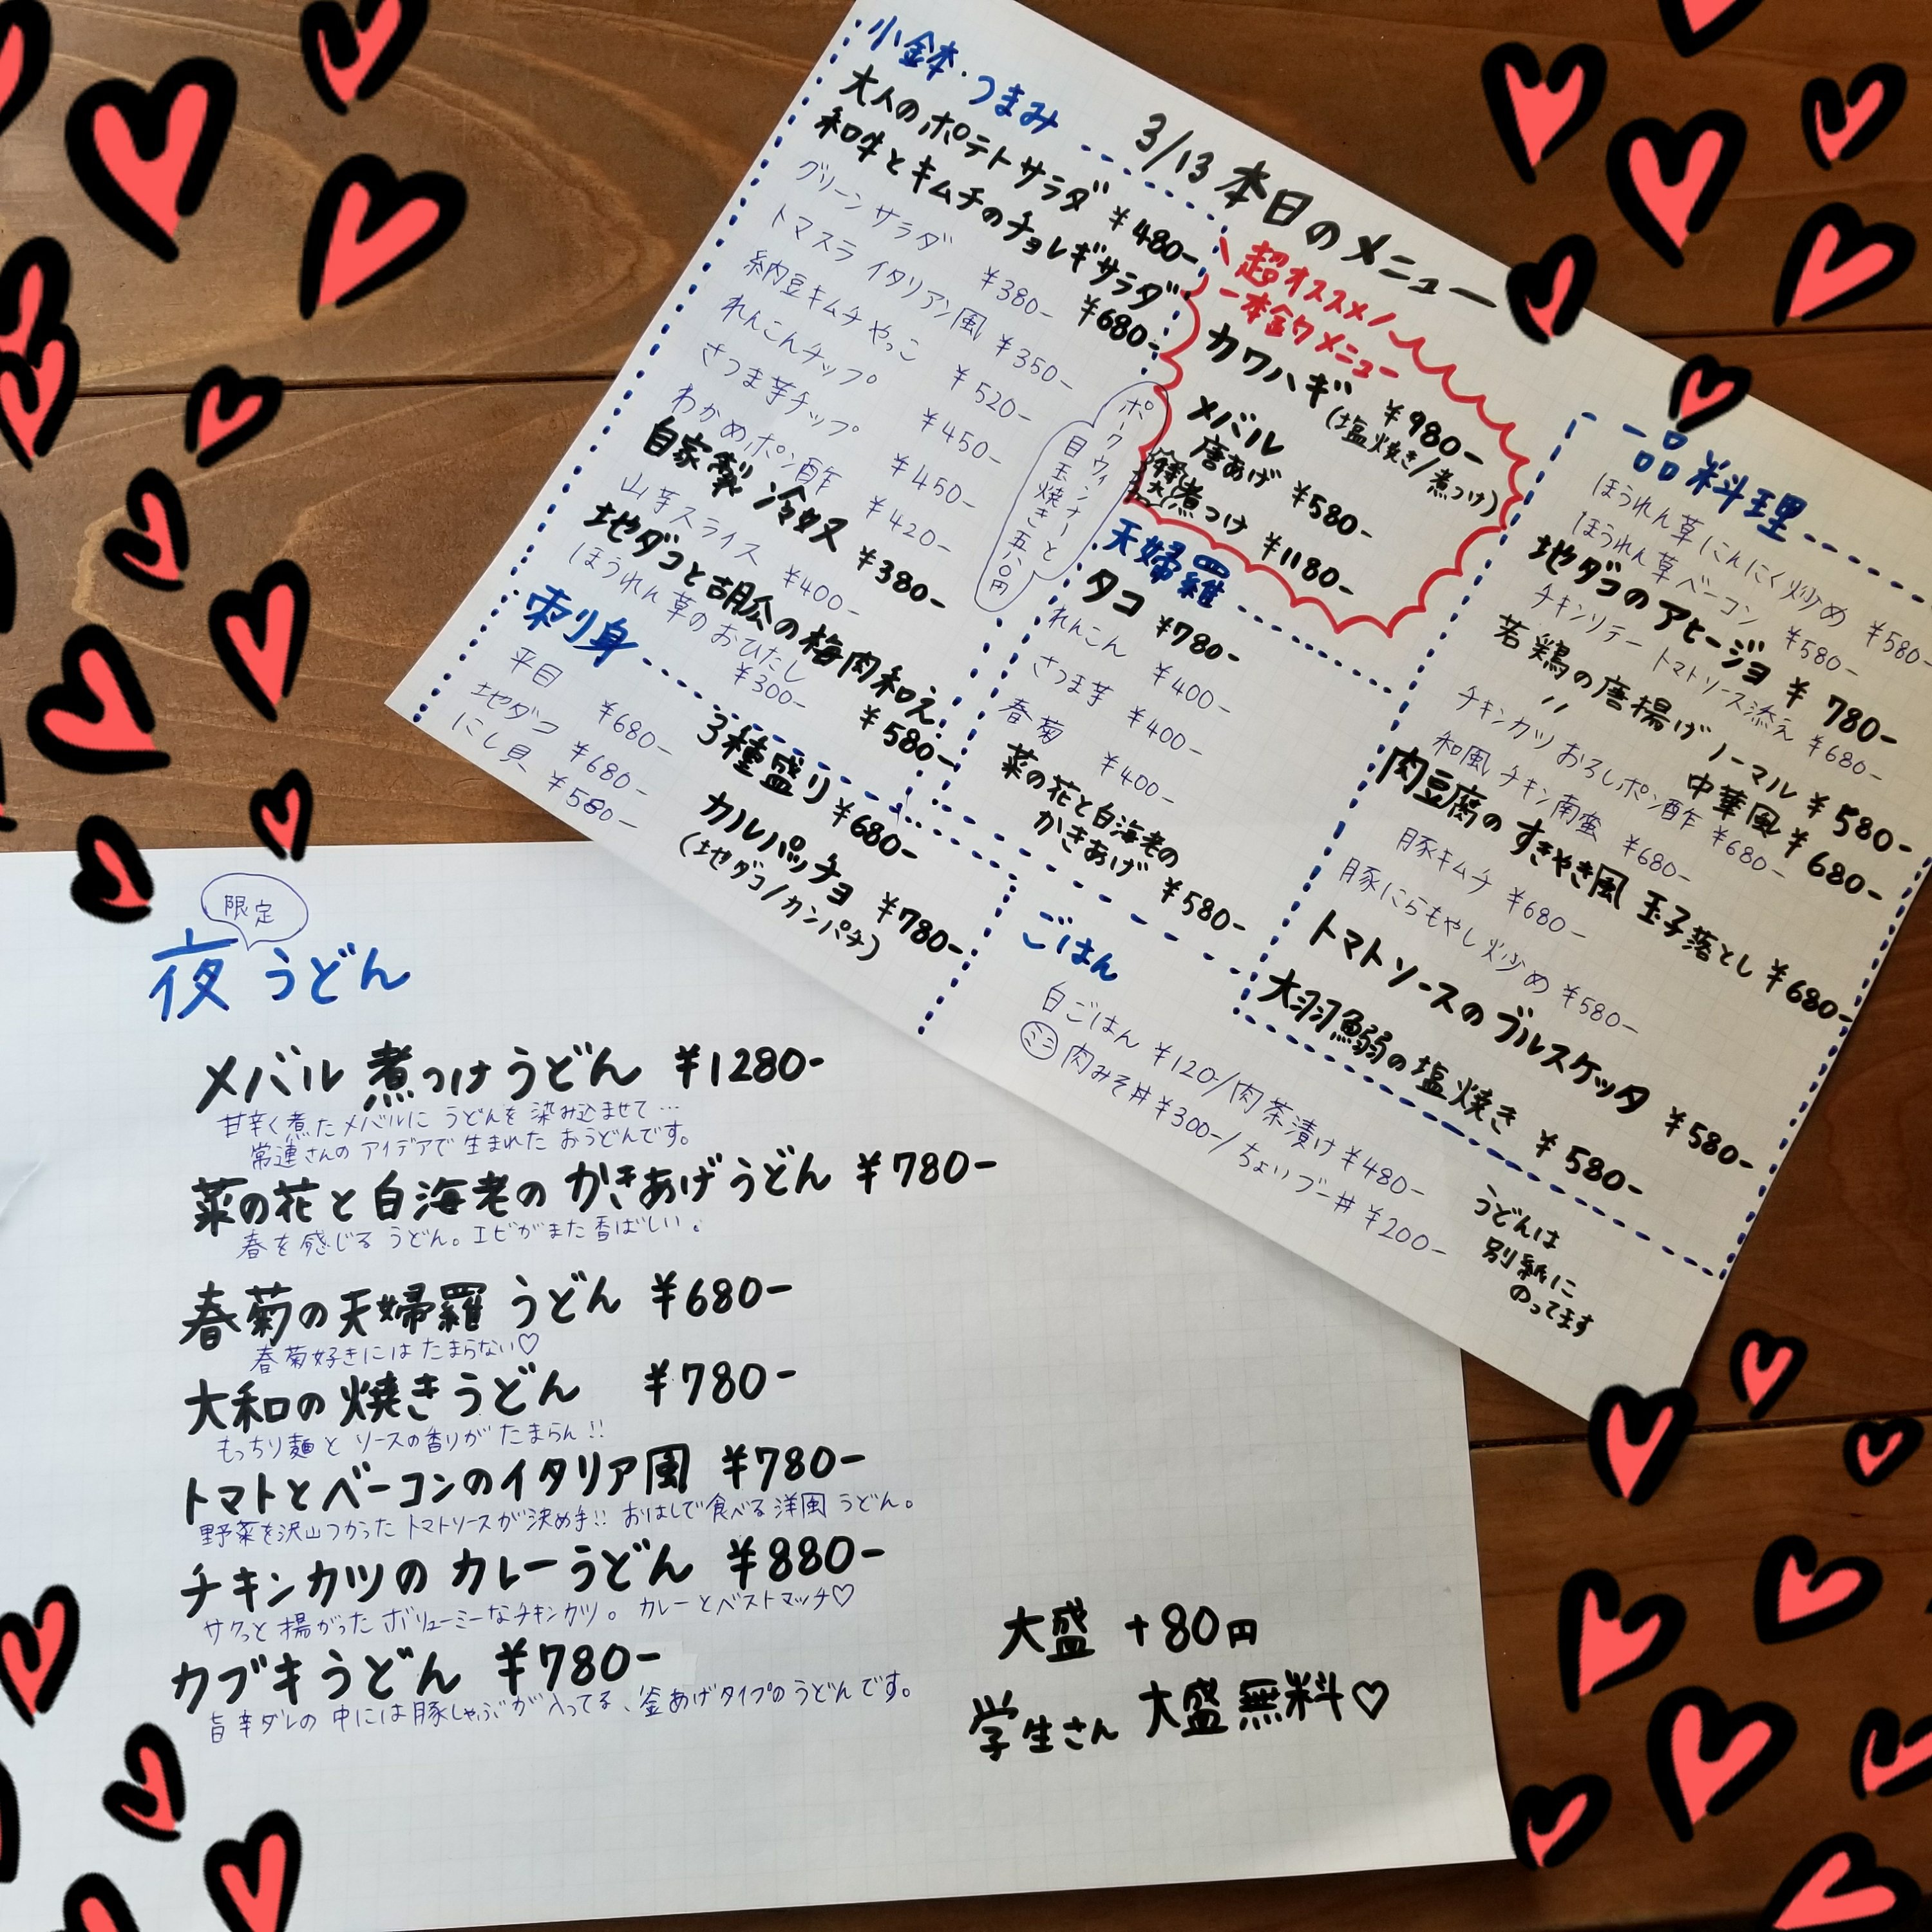 3/13 本日のメニュー
小鉢・つまみ
大人のポテトサラダ ¥480-
和牛とキムチのチョレギサラダ ¥680-
グリーンサラダ ¥380-
トマスラ イタリアン風 ¥350-
納豆キムチやっこ ¥520-
れんこんチップ ¥450-
さつま芋チップ ¥450-
わかめポン酢 ¥420-
自家製 冷奴 ¥380-
山芋スライス ¥400-
地ダコと胡瓜の梅肉和え ¥580-
ほうれん草のおひたし
¥300-
ポークウィンナーと
目玉焼き 五八〇円
刺り身
平目 ¥680-
地ダコ ¥680-
にし貝 ¥580-
3種盛り ¥680-
カルパッチョ ¥780-
(地ダコ/カンパチ)
\超オススメ/
一本釣りメニュー
カワハギ ¥980-
(塩焼き/煮つけ)
メバル
唐あげ ¥580-
煮つけ ¥1180-
天婦羅
タコ ¥780-
れんこん ¥400-
さつま芋 ¥400-
春菊 ¥400-
菜の花と白海老の
かきあげ ¥580-
ごはん
白ごはん ¥120-/肉茶漬け ¥480-
ミニ 肉みそ丼 ¥300-/ちょいブー丼 ¥200-
一品料理
ほうれん草 にんにく炒め ¥580-
ほうれん草 ベーコン ¥580-
地ダコのアヒージョ ¥780-
チキンソテー トマトソース添え ¥680-
若鶏の唐揚げ ノーマル ¥580-
〃 中華風 ¥680-
チキンカツ おろしポン酢 ¥680-
和風 チキン南蛮 ¥680-
肉豆腐の すきやき風 玉子落とし ¥680-
豚キムチ ¥680-
豚にらもやし炒め ¥580-
トマトソースのブルスケッタ ¥580-
大羽鰯の塩焼き ¥580-
うどんは
別紙に
のってます
限定
夜うどん
メバル煮つけうどん ¥1280-
甘辛く煮たメバルに うどんを 染み込ませて…
常連さんの アイデアで 生まれた おうどんです。
菜の花と白海老の かきあげうどん ¥780-
春を感じる うどん。エビがまた香ばしい。
春菊の天婦羅 うどん ¥680-
春菊好きには たまらない♡
大和の焼きうどん ¥780-
もっちり麺と ソースの香りが たまらん!!
トマトとベーコンのイタリア風 ¥780-
野菜を沢山つかった トマトソースが決め手!! おはしで食べる洋風 うどん。
チキンカツの カレーうどん ¥880-
サクっと揚がった ボリューミーなチキンカツ。カレーとベストマッチ♡
カブキうどん ¥780-
旨辛ダレの 中には豚しゃぶが入ってる、釜あげタイプのうどんです。
大盛 +80円
学生さん 大盛無料♡